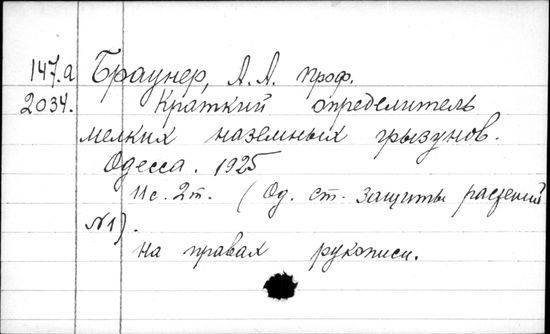 147.а Браунер, А.А. проф.
2034. Краткий определитель
мелких наземных грызунов.
Одесса. 1925
11с. 2т. (Од. ст. защиты растений
№1).
на правах рукописи.